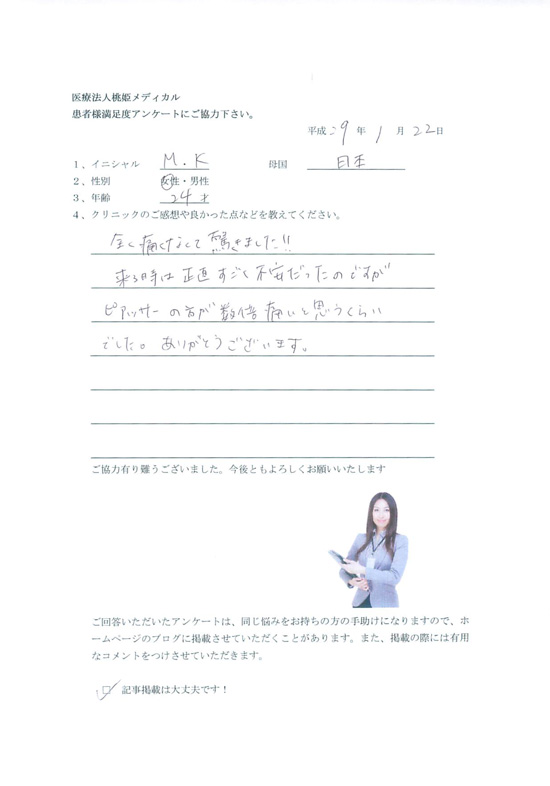 医療法人桃姫メディカル
患者様満足度アンケートにご協力下さい。
平成 29 年 1 月 22 日
1、イニシャル M.K 母国 日本
2、性別 女性・男性
3、年齢 24才
4、クリニックのご感想や良かった点などを教えてください。
全く痛くなくて驚きました!!
来る時は正直すごく不安だったのですが
ピアッサーの方が数倍痛いと思うくらい
でした。ありがとうございます。
ご協力有り難うございました。今後ともよろしくお願いいたします
ご回答いただいたアンケートは、同じ悩みをお持ちの方の手助けになりますので、ホ
ームページのブログに掲載させていただくことがあります。また、掲載の際には有用
なコメントをつけさせていただきます。
□ 記事掲載は大丈夫です！